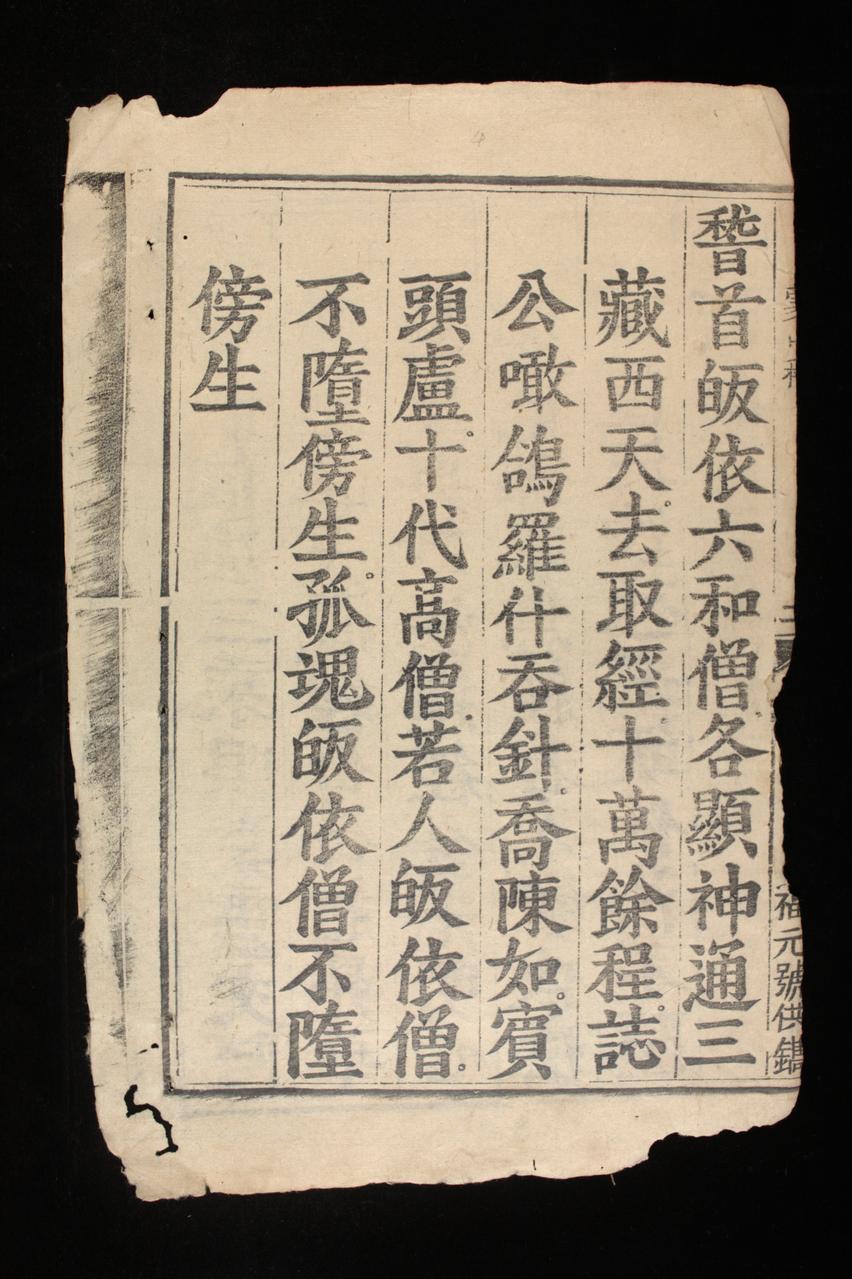 稽首皈依六和僧各顯神通三
藏西天。去取經十萬餘程。誌
公噉鴿羅什吞針。喬陳如。賓
頭盧。十代高僧。若人皈依僧。
不隨傍生。孤魂皈依僧不隨
傍生
福元號供鐫